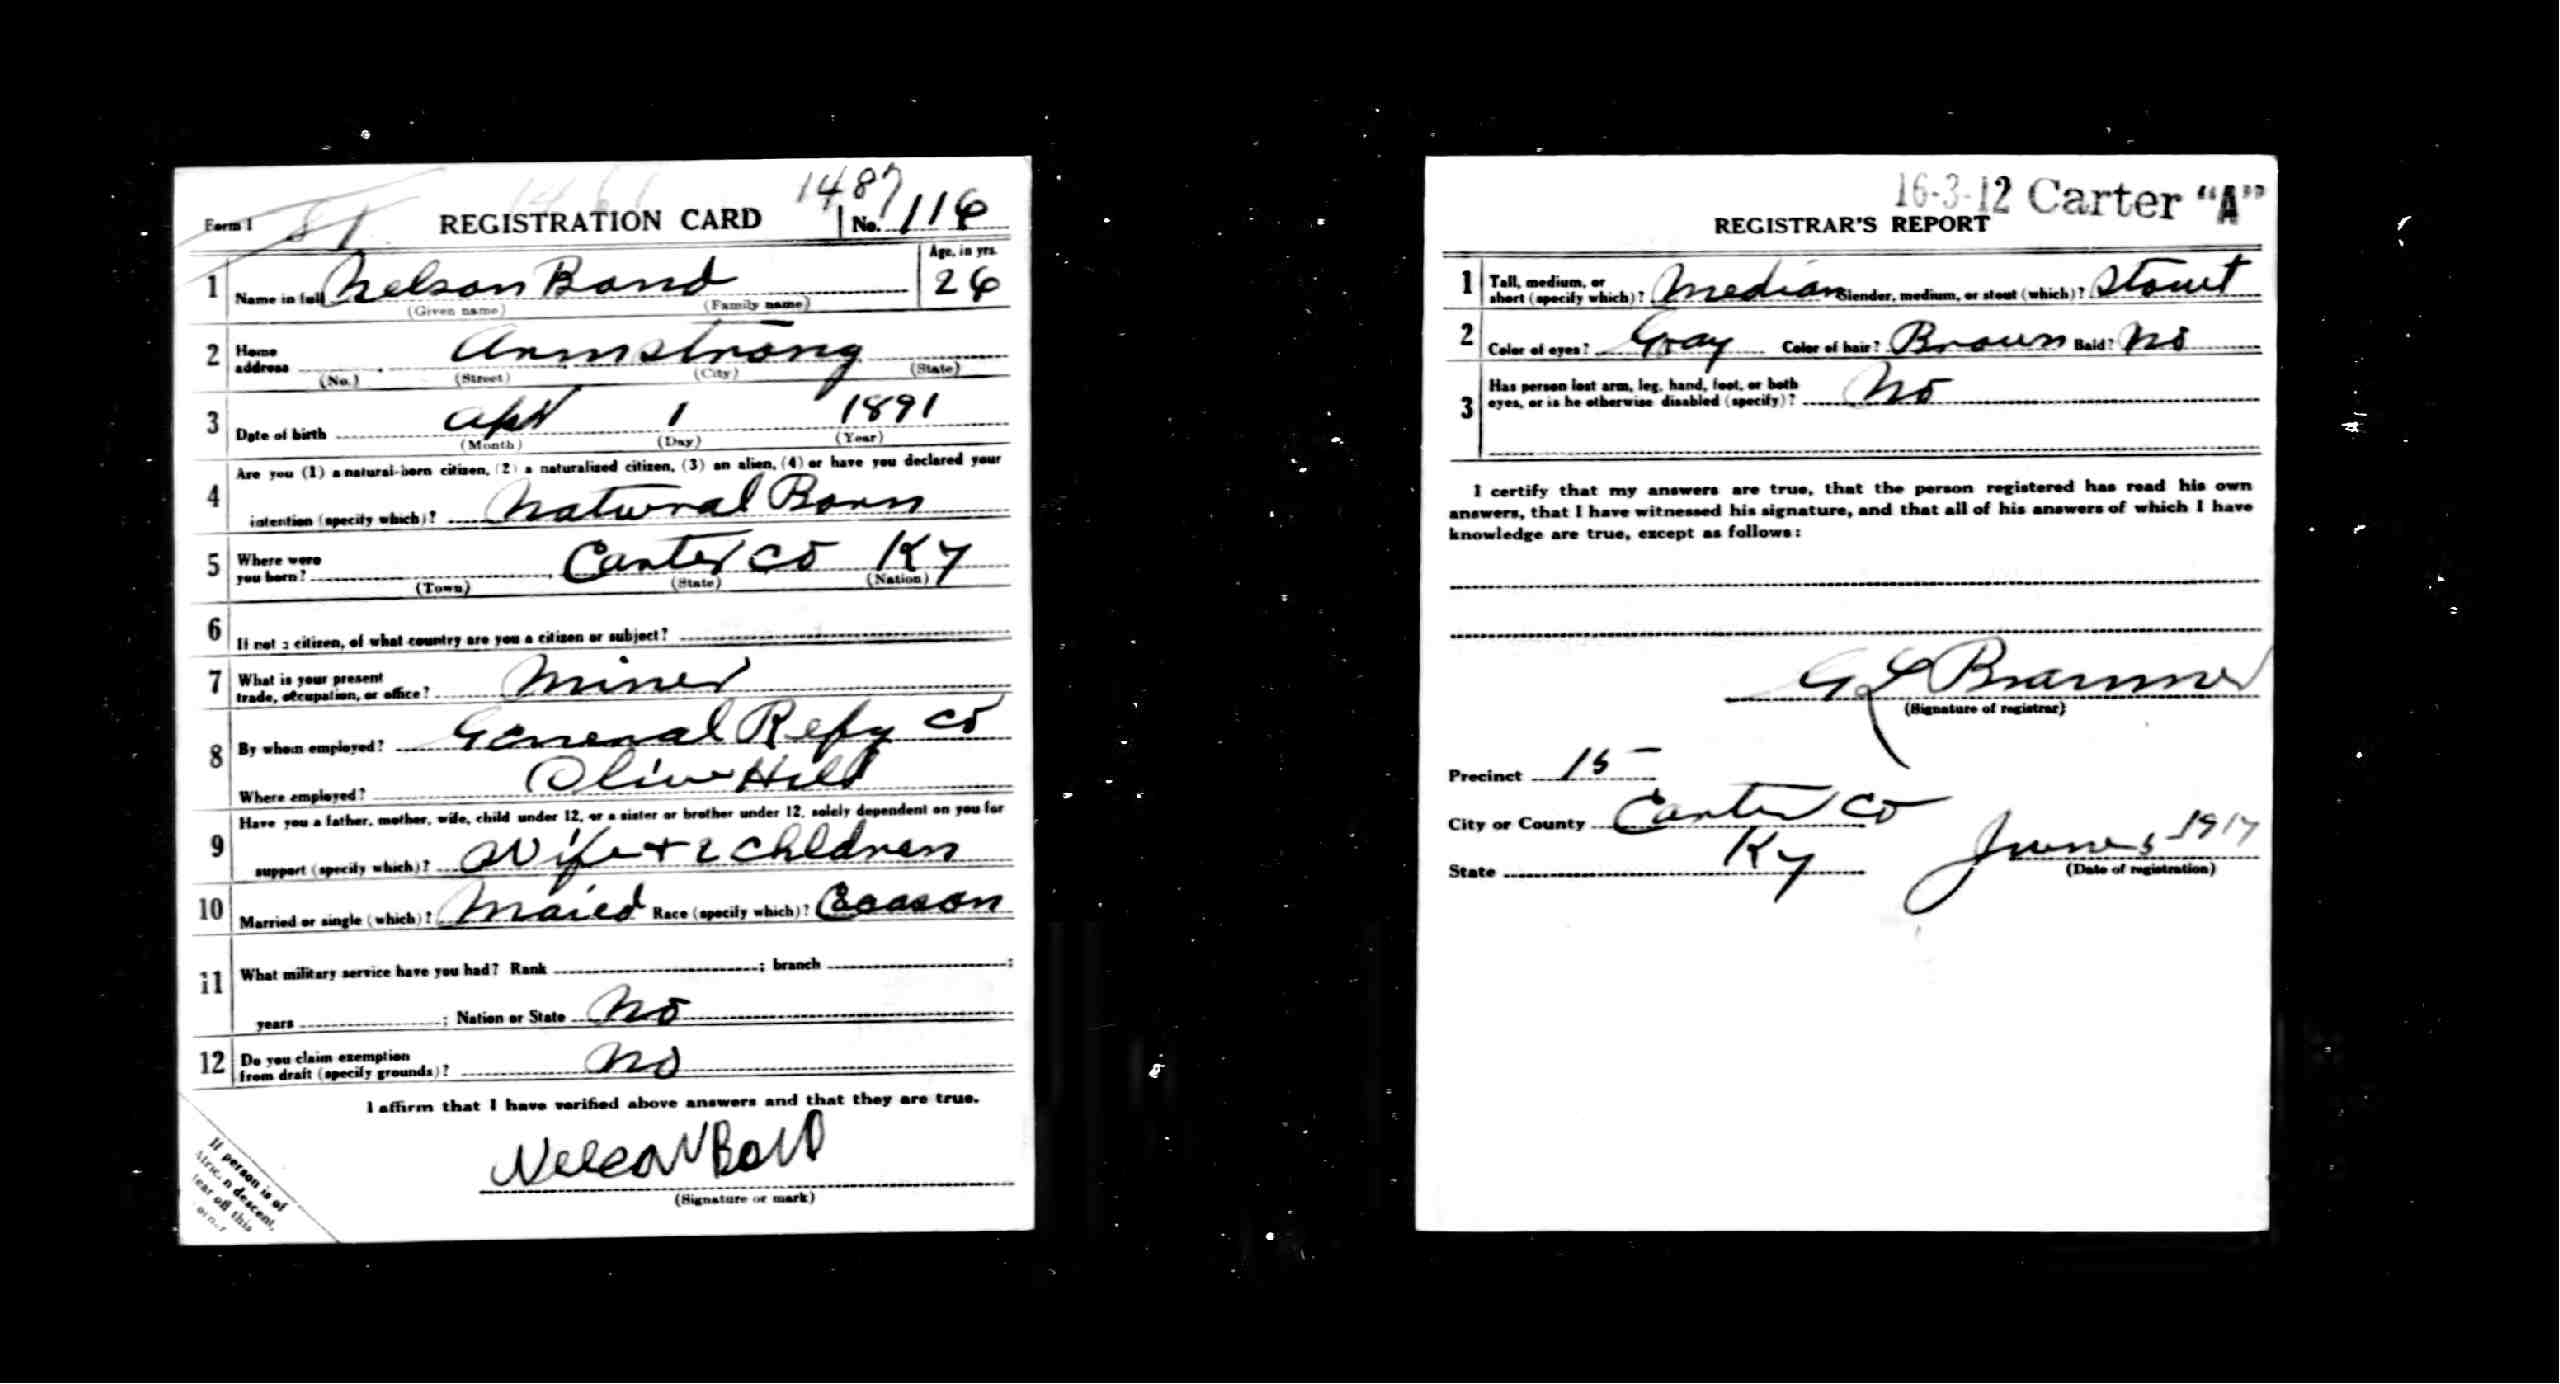 1487
Form 1 REGISTRATION CARD No. 116
1 Name in full Nelson Bond Age, in yrs. 26
(Given name) (Family name)
2 Home address Armstrong
(No.) (Street) (City) (State)
3 Date of birth Apr 1 1891
(Month) (Day) (Year)
Are you (1) a natural-born citizen, (2) a naturalized citizen, (3) an alien, (4) or have you declared your
4 intention (specify which)? Natural Born
5 Where were you born? Carter Co Ky
(Town) (State) (Nation)
6 If not a citizen, of what country are you a citizen or subject?
7 What is your present trade, occupation, or office? Miner
8 By whom employed? General Refy Co
Where employed? Olive Hill
Have you a father, mother, wife, child under 12, or a sister or brother under 12, solely dependent on you for
9 support (specify which)? Wife + 2 children
10 Married or single (which)? Maied Race (specify which)?
11 What military service have you had? Rank ; branch ;
years ; Nation or State No
12 Do you claim exemption from draft (specify grounds)? No
I affirm that I have verified above answers and that they are true.
Nelson Bond
(Signature or mark)
If person is of
African descent,
tear off this
corner
16-3-12 Carter "A"
REGISTRAR'S REPORT
1 Tall, medium, or short (specify which)? Median Slender, medium, or stout (which)? Stout
2 Color of eyes? Gray Color of hair? Brown Bald? No
3 Has person lost arm, leg, hand, foot, or both eyes, or is he otherwise disabled (specify)? No
I certify that my answers are true, that the person registered has read his own
answers, that I have witnessed his signature, and that all of his answers of which I have
knowledge are true, except as follows:
G L Brammer
(Signature of registrar)
Precinct 15
City or County Carter Co
State Ky June 5 1917
(Date of registration)